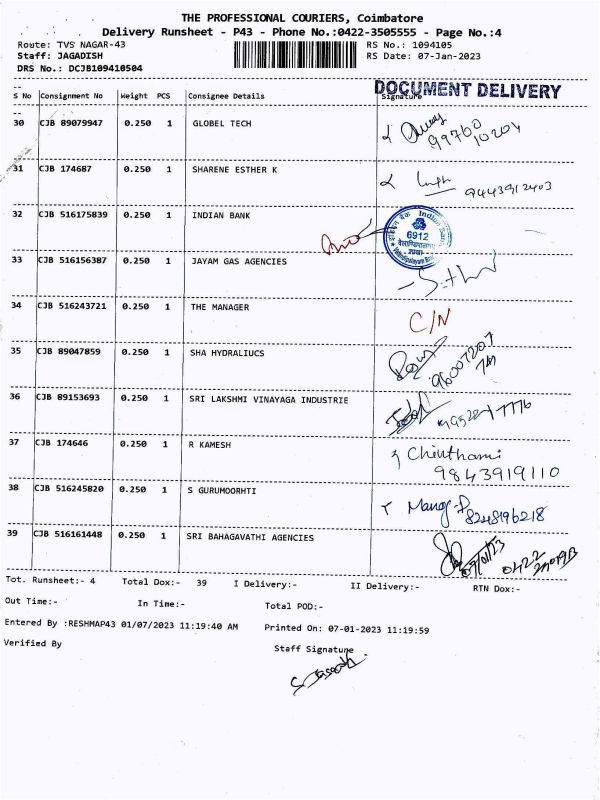 THE PROFESSIONAL COURIERS, Coimbatore
Delivery Runsheet - P43 - Phone No.:0422-3505555 - Page No.:4
Route: TVS NAGAR-43 RS No.: 1094105
Staff: JAGADISH RS Date: 07-Jan-2023
DRS No.: DCJB109410504
DOCUMENT DELIVERY
S No Consignment No Weight PCS Consignee Details Signature
30 CJB 89079947 0.250 1 GLOBEL TECH
99760
10204
31 CJB 174687 0.250 1 SHARENE ESTHER K
9443912403
32 CJB 516175839 0.250 1 INDIAN BANK
Indian Bank
6912
33 CJB 516156387 0.250 1 JAYAM GAS AGENCIES
34 CJB 516243721 0.250 1 THE MANAGER
C/N
35 CJB 89047859 0.250 1 SHA HYDRALIUCS
36 CJB 89153693 0.250 1 SRI LAKSHMI VINAYAGA INDUSTRIE
37 CJB 174646 0.250 1 R KAMESH
Chinthami
9843919110
38 CJB 516245820 0.250 1 S GURUMOORHTI
Manoj.P
8248196218
39 CJB 516161448 0.250 1 SRI BAHAGAVATHI AGENCIES
0422
Tot. Runsheet:- 4 Total Dox:- 39 I Delivery:- II Delivery:- RTN Dox:-
Out Time:- In Time:- Total POD:-
Entered By :RESHMAP43 01/07/2023 11:19:40 AM Printed On: 07-01-2023 11:19:59
Verified By Staff Signature